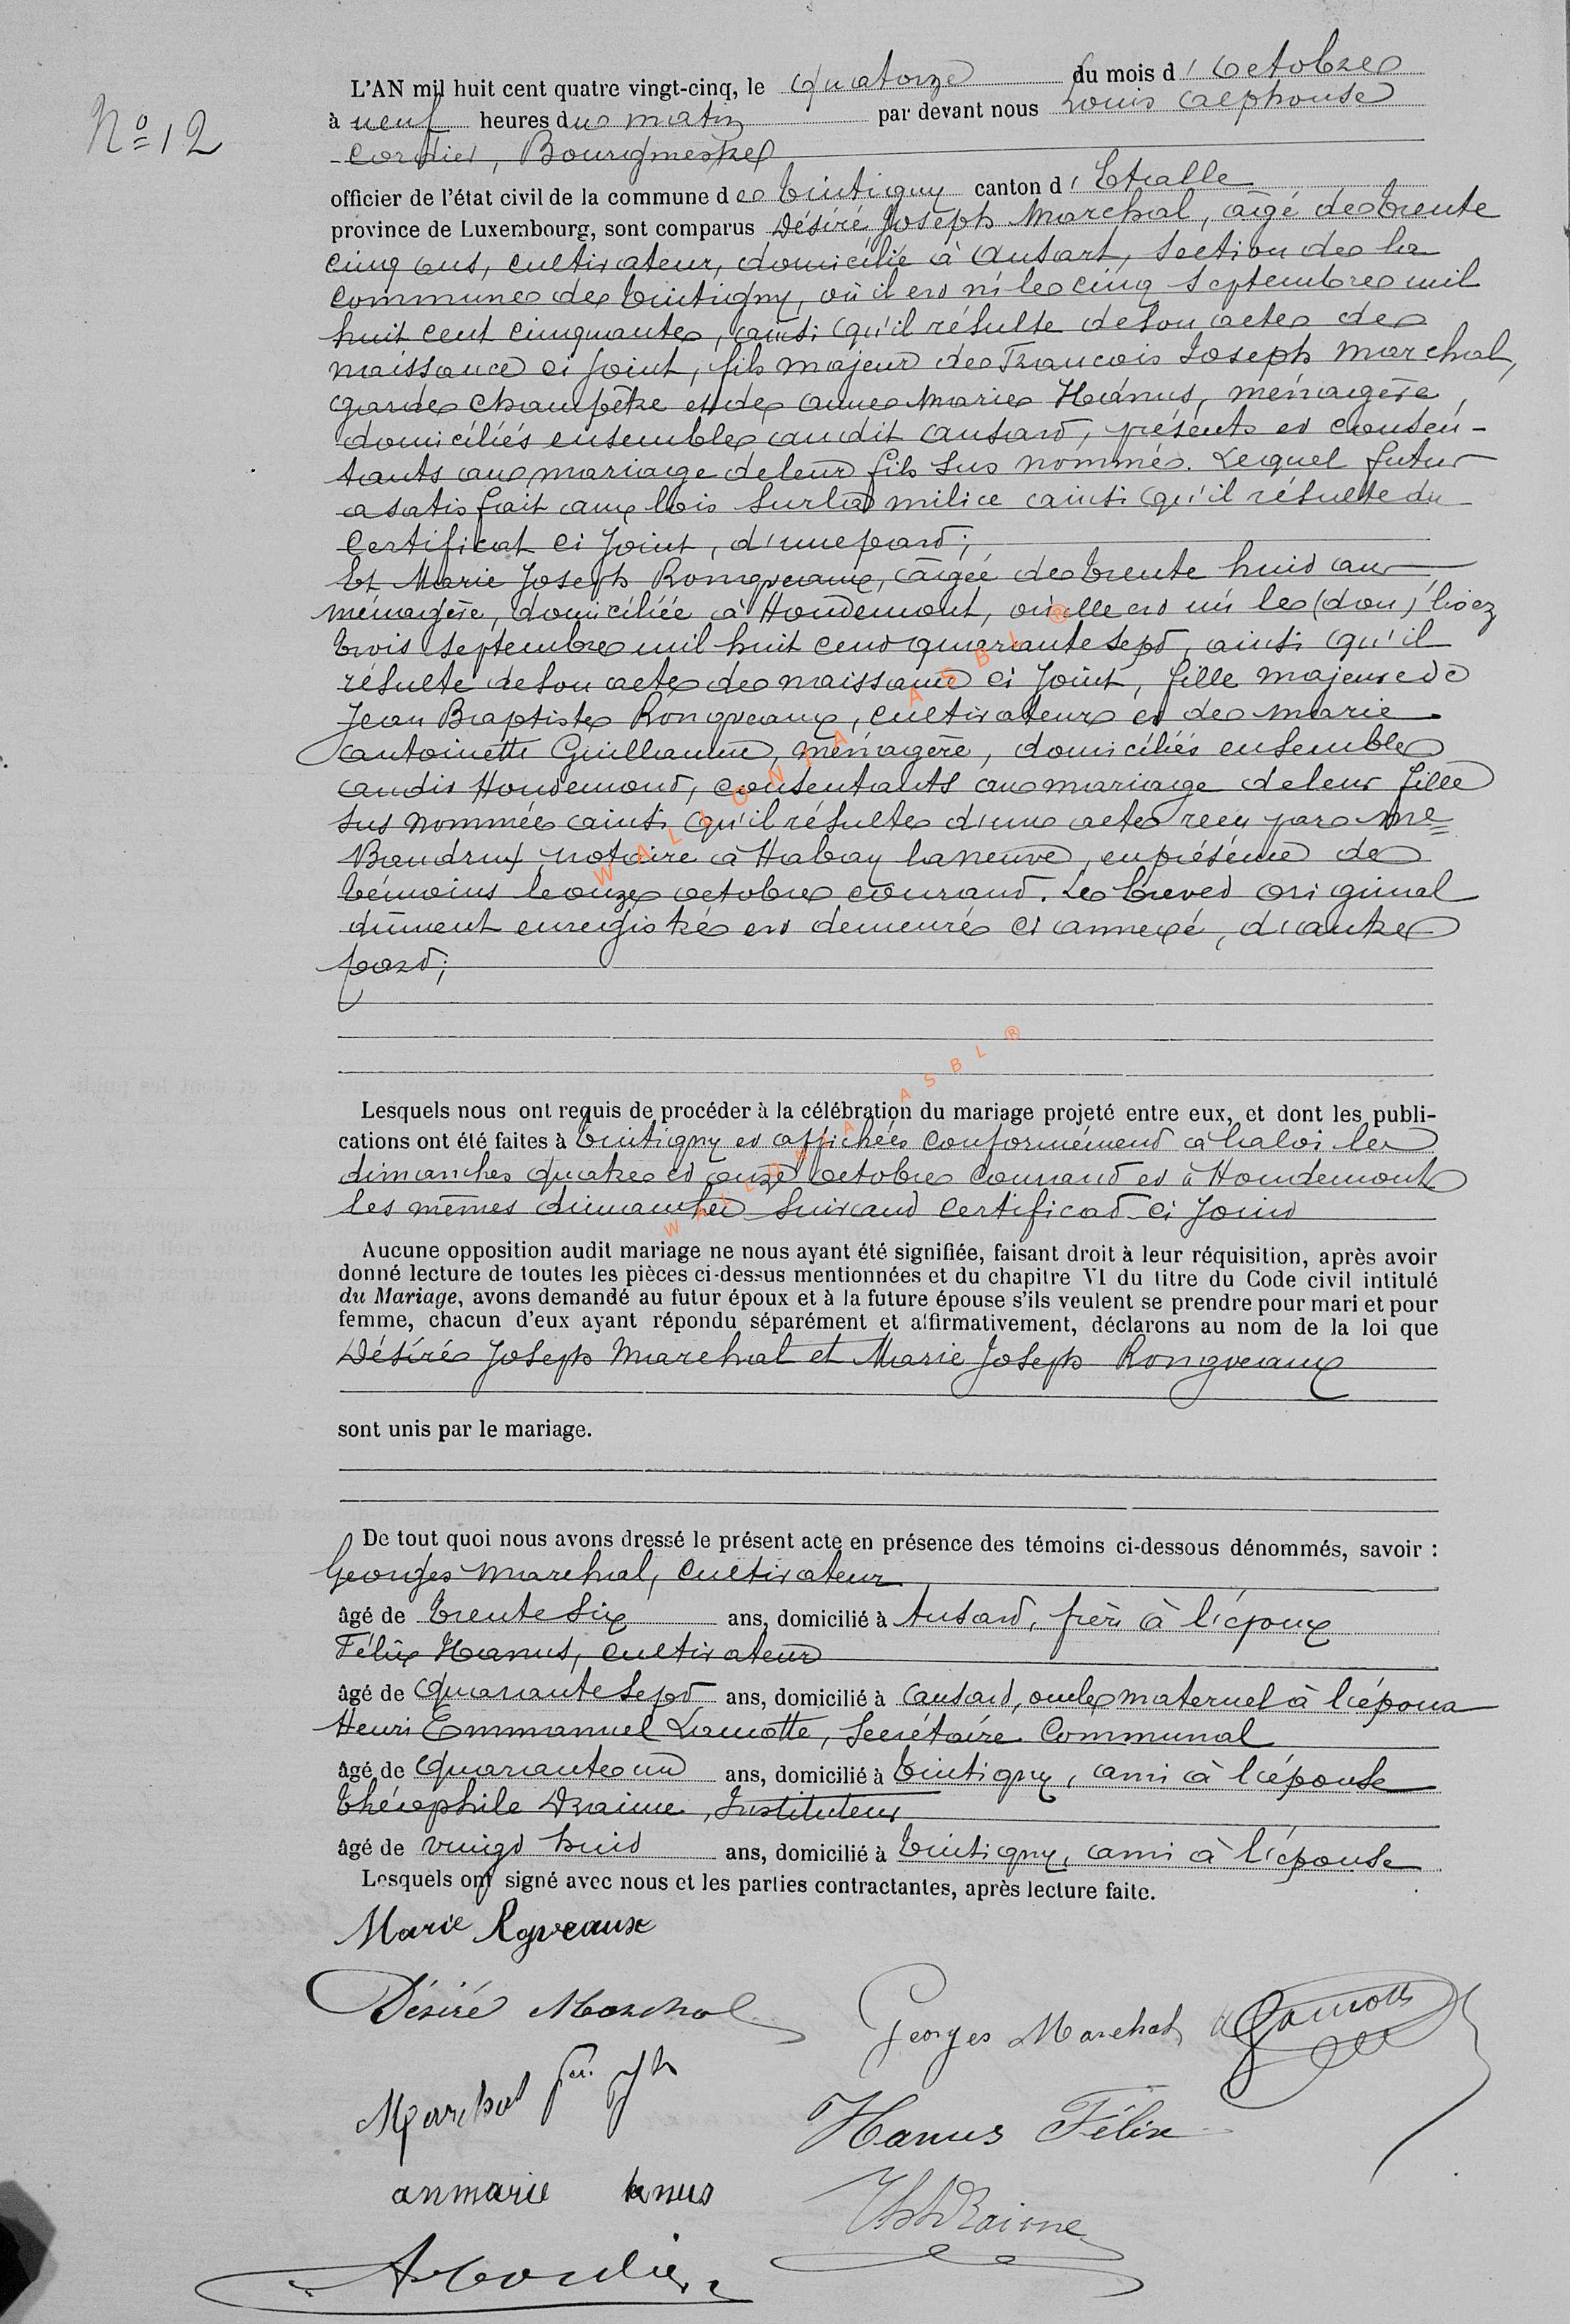 N° 12
L'AN mil huit cent quatre vingt-cinq, le quatorze du mois d'Octobre
à neuf heures du matin par devant nous Louis Alphonse
Cordier, Bourgmestre
officier de l'état civil de la commune de Tintigny canton d'Etalle
province de Luxembourg, sont comparus Désiré Joseph Marchal, âgé de trente
cinq ans, cultivateur, domicilié à Ansart, section de la
commune de Tintigny, où il est né le cinq septembre mil
huit cent cinquante, ainsi qu'il résulte de son acte de
naissance ci joint, fils majeur de François Joseph Marchal,
garde champêtre et de Anne Marie Hanus, ménagère,
domiciliés ensemble audit Ansart, présents et consen-
tants au mariage de leur fils sus nommé. Lequel futur
a satisfait aux lois sur la milice ainsi qu'il résulte du
certificat ci joint, d'une part;
Et Marie Joseph Rongveaux, âgée de trente huit ans
ménagère, domiciliée à Houdemont, où elle est née le
trois septembre mil huit cent quarante sept, ainsi qu'il
résulte de son acte de naissance ci joint, fille majeure de
Jean Baptiste Rongveaux, cultivateur et de Marie
Antoinette Guillaume, ménagère, domiciliés ensemble
audit Houdemont, consentants au mariage de leur fille
sus nommée ainsi qu'il résulte d'un acte reçu par Me
notaire à Habay la neuve, en présence de
témoins le onze octobre courant. Le brevet original
dûment enregistré est demeuré ci annexé, d'autre
part;
WALLONIA ASBL ®
Lesquels nous ont requis de procéder à la célébration du mariage projeté entre eux, et dont les publi-
cations ont été faites à Tintigny et affichées conformément à la loi les
dimanches quatre et onze octobre courant et à Houdemont
les mêmes dimanches suivant certificat ci joint
WALLONIA ASBL ®
Aucune opposition audit mariage ne nous ayant été signifiée, faisant droit à leur réquisition, après avoir
donné lecture de toutes les pièces ci-dessus mentionnées et du chapitre VI du titre du Code civil intitulé
du Mariage, avons demandé au futur époux et à la future épouse s'ils veulent se prendre pour mari et pour
femme, chacun d'eux ayant répondu séparément et affirmativement, déclarons au nom de la loi que
Désiré Joseph Marchal et Marie Joseph Rongveaux
sont unis par le mariage.
De tout quoi nous avons dressé le présent acte en présence des témoins ci-dessous dénommés, savoir :
Georges Marchal, cultivateur
âgé de trente six ans, domicilié à Ansart, frère à l'époux
Félix Hanus, cultivateur
âgé de quarante sept ans, domicilié à Ansart, oncle maternel à l'époux
Henri Emmanuel Lamotte, Secrétaire Communal
âgé de quarante un ans, domicilié à Tintigny, ami à l'épouse
Théophile Draime, Instituteur
âgé de vingt huit ans, domicilié à Tintigny, ami à l'épouse
Lesquels ont signé avec nous et les parties contractantes, après lecture faite.
Marie Rgveaux
Désiré Marchal
Georges Marchal Lamotte
Marchal fois jh
Hanus Félix
anmarie hanus
Th Draime
A Cordier